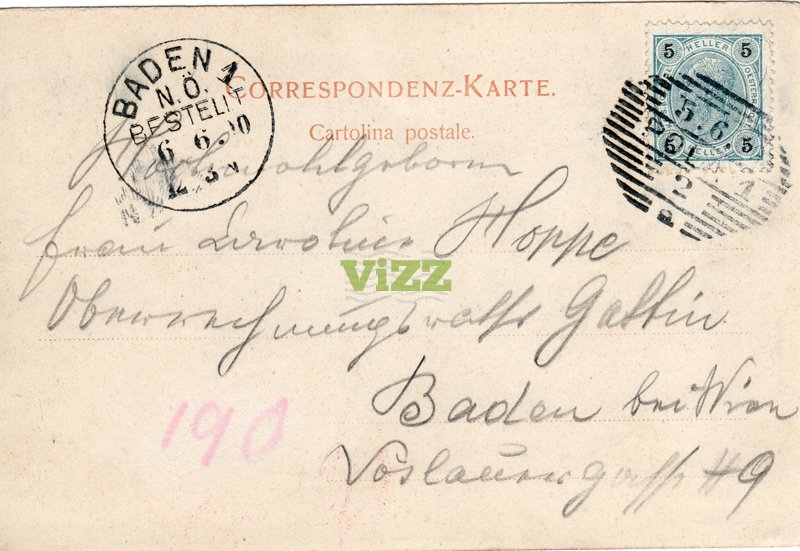 BADEN 1
N.Ö.
BESTELLT
6 6 00
12 3 N
CORRESPONDENZ-KARTE.
Cartolina postale.
5 HELLER 5
5 HELLER 5
5.6.
POLA
2 1
Hochwohlgeboren
Frau Caroline Hoppe
ViZZ
Oberrechnungsraths Gattin
Baden bei Wien
Vöslauergasse #9
190